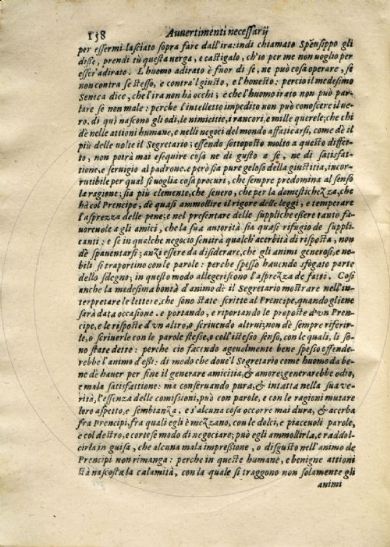 138 Auuertimenti necessarij
per essermi lasciato sopra fare dall'ira: indi chiamato Speusippo gli
disse, prendi tù questa uerga, e castigalo, ch'io per me non uoglio per
esser'adirato. L'huomo adirato è fuor di sé, ne può cosa operare, se
non contra se stesso, e contra'l giusto, e l'honesto: perciò il medesimo
Seneca dice, che l'ira non hà occhi; e che l'huomo irato non può par-
lare se non male: perche l'intelletto impedito non può conoscere il ue-
ro. di quì nascono gli odi, le nimicitie, i rancori, e mille querele; che chi
dè nelle attioni humane, e nelli negoci del mondo affaticarsi, come dè il
più delle uolte il Segretario; essendo sottoposto molto a questo diffet-
to, non potrà mai esequire cosa ne di gusto a se, ne di satisfat-
tione, e seruigio al padrone. e però sia pure geloso della giustitia, incor-
rutibile per quel si uoglia cosa procuri, che sempre predomina al senso
la ragione; sia più clemente, che seuero, che per la domestichezza, che
hà col Prencipe, dè quasi ammollire il rigore delle leggi, e temperare
l'asprezza delle pene: e nel presentare delle suppliche essere tanto fa-
uoreuole a gli amici, che la sua autorità sia quasi rifugio de suppli-
canti: e se in qualche negocio sentirà qualch'acerbità di risposta, non
dè spauentarsi; anzi essere da disiderare, che gli animi generosi, e no-
bili se traportino con le parole: perche spesso hauendo sfogato parte
dello sdegno; in questo modo allegeriscono l'asprezza de fatti. Cosi
anche la medesima bontà d'animo dè il Segretario mostrare nell'in-
terpretare le lettere, che sono state scritte al Prencipe, quando gliene
sarà data occasione. e portando, e riportando le proposte d'un Pren-
cipe, e le risposte d'un altro, o scriuendo altrui; non dè sempre riferir-
le, o scriuerle con le parole stesse, e coll'istesso senso, con le quali, li so-
no state dette: perche ciò facendo ageuolmente bene spesso offende-
rebbe l'animo d'essi: di modo che doue'l Segretario come huomo da be-
ne dè hauer per fine il generare amicitia, & amore; generarebbe odio,
e mala satisfattione: ma conseruando pura, & intatta nella sua ue-
rità, l'essenza delle comissioni, può con parole, e con le ragioni mutare
loro aspetto, e sembianza, e s'alcuna cosa occorre mai dura, & acerba
fra Prencipi, fra quali egli è mezzano, con le dolci, e piaceuoli parole,
e col destro, e cortese modo di negociare; può egli ammollirla, e raddol-
cirla in guisa, che alcuna mala impressione, o disgusto nell'animo de
Prencipi non rimanga: perche in queste humane, e benigne attioni
stà nascosta la calamità, con la quale si traggono non solamente gli
animi